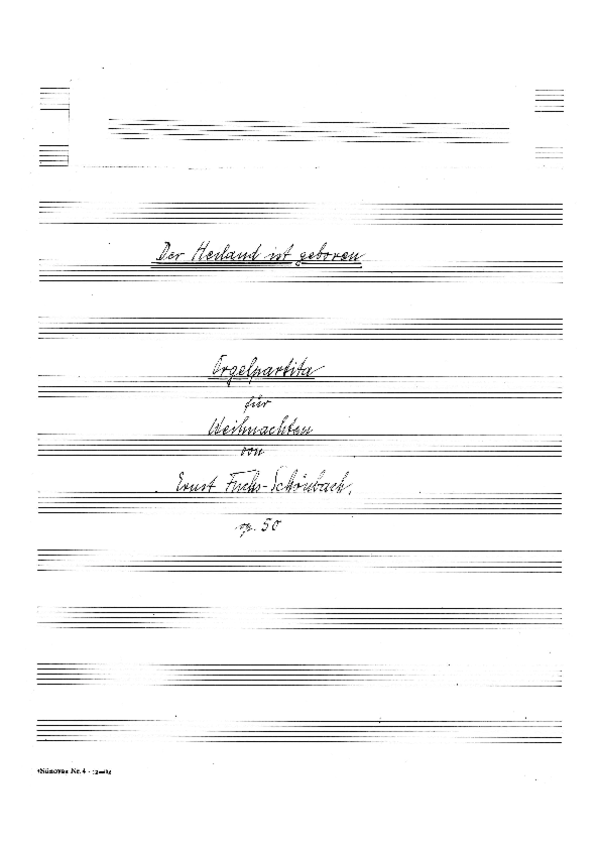 Der Heiland ist geboren
Orgelpartita
für
Weihnachten
von
Ernst Fuchs-Schönbach.
op. 50
Nr. 4